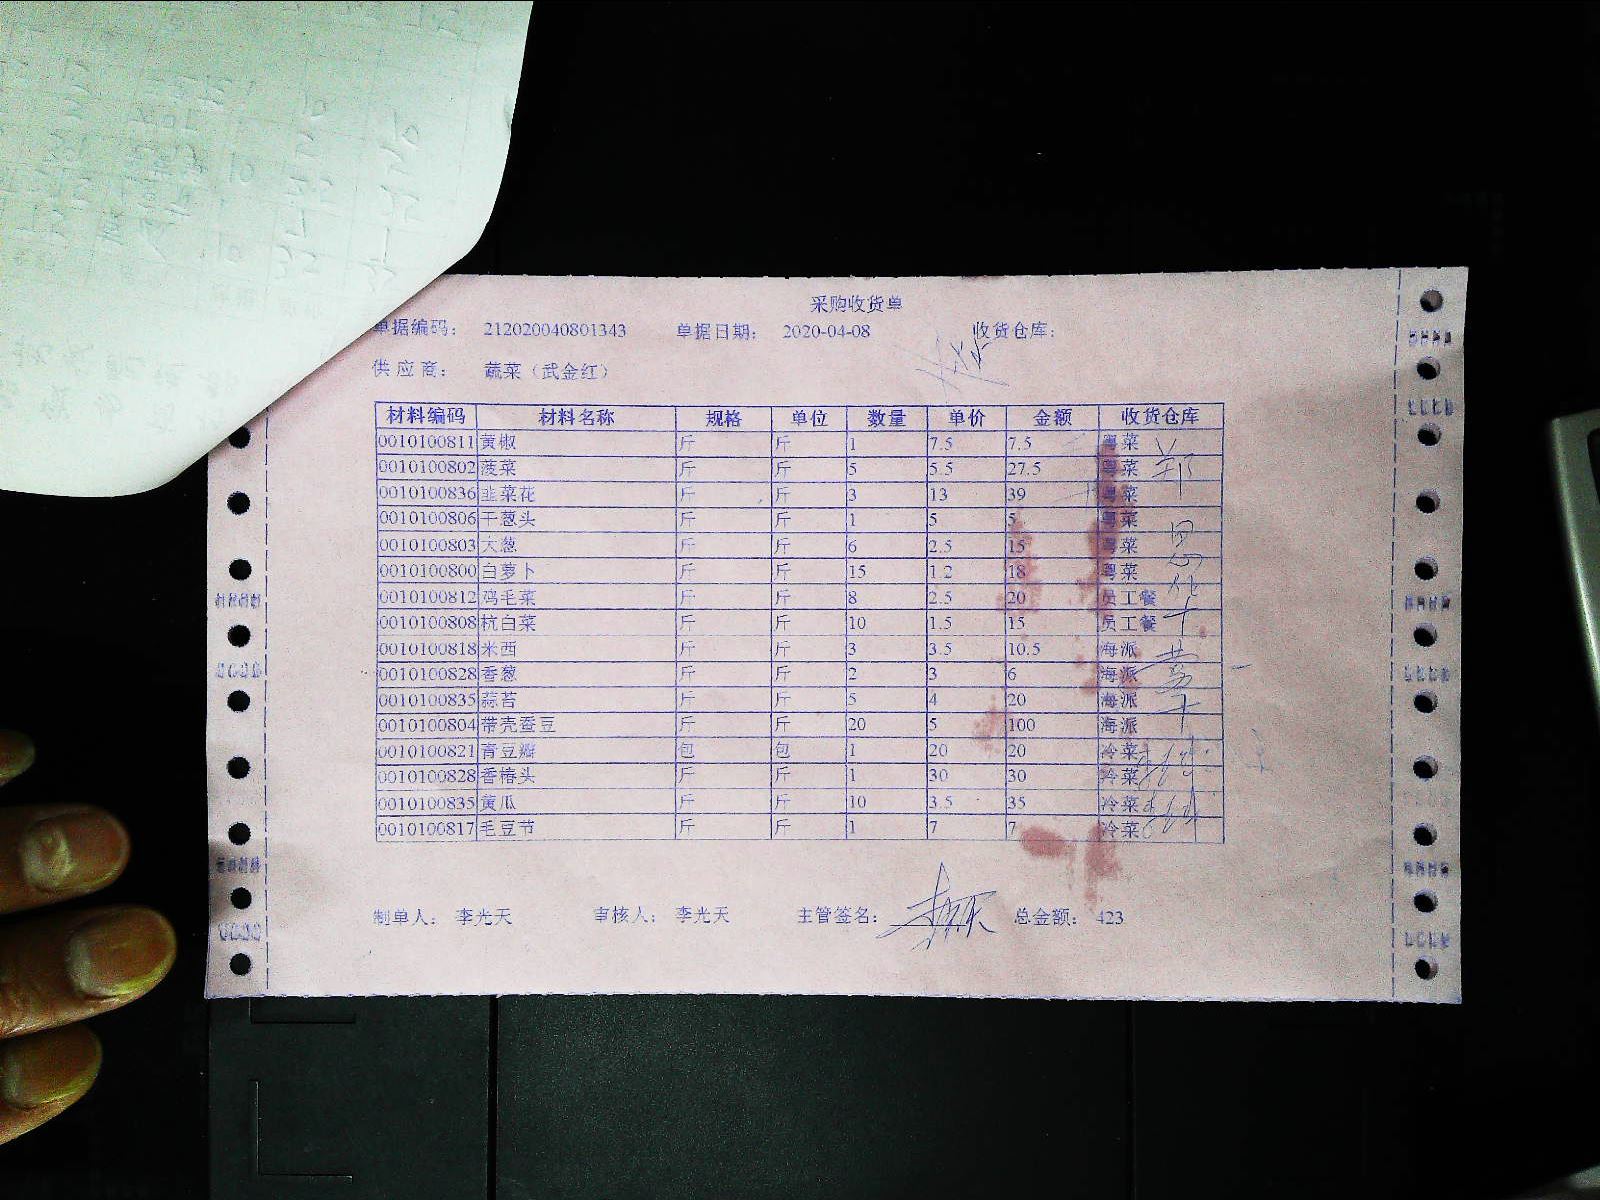 采购收货单
单据编码： 212020040801343 单据日期： 2020-04-08 收货仓库：
供应商： 蔬菜（武金红）
材料编码 材料名称 规格 单位 数量 单价 金额 收货仓库
0010100811 黄椒 斤 斤 1 7.5 7.5 粤菜
0010100802 菠菜 斤 斤 5 5.5 27.5 粤菜
0010100836 韭菜花 斤 斤 3 13 39 粤菜
0010100806 干葱头 斤 斤 1 5 5 粤菜
0010100803 大葱 斤 斤 6 2.5 15 粤菜
0010100800 白萝卜 斤 斤 15 1.2 18 粤菜
0010100812 鸡毛菜 斤 斤 8 2.5 20 员工餐
0010100808 杭白菜 斤 斤 10 1.5 15 员工餐
0010100818 米西 斤 斤 3 3.5 10.5 海派
0010100828 香葱 斤 斤 2 3 6 海派
0010100835 蒜苔 斤 斤 5 4 20 海派
0010100804 带壳蚕豆 斤 斤 20 5 100 海派
0010100821 青豆瓣 包 包 1 20 20 冷菜
0010100828 香椿头 斤 斤 1 30 30 冷菜
0010100835 黄瓜 斤 斤 10 3.5 35 冷菜
0010100817 毛豆节 斤 斤 1 7 7 冷菜
制单人： 李光天 审核人： 李光天 主管签名： 总金额： 423